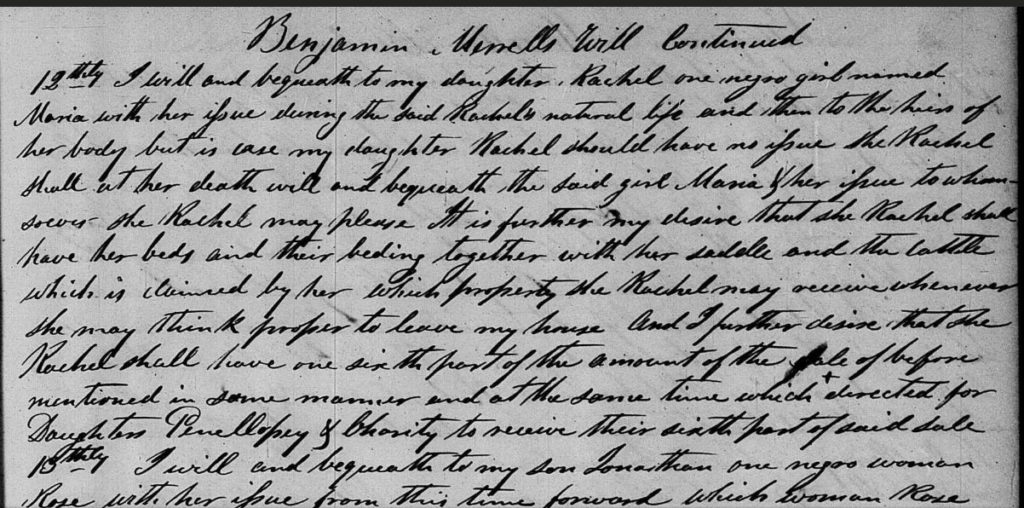 Benjamin Merrells Will Continued
12thly I will and bequeath to my daughter Rachel one negro girl named
Maria with her issue during the said Rachel's natural life and then to the heirs of
her body but is case my daughter Rachel should have no issue she Rachel
shall at her death will and bequeath the said girl Maria & her issue to whom-
soever she Rachel may please It is further my desire that she Rachel shall
have her beds and their beding together with her saddle and the cattle
which is claimed by her which property she Rachel may receive whenever
she may think proper to leave my house And I further desire that she
Rachel shall have one sixth part of the amount of the sale of before
mentioned in same manner and at the same time which + directed for
Daughters Penellopey & Charity to receive their sixth part of said sale
13thly I will and bequeath to my son Jonathan one negro woman
Rose with her issue from this time forward which woman Rose